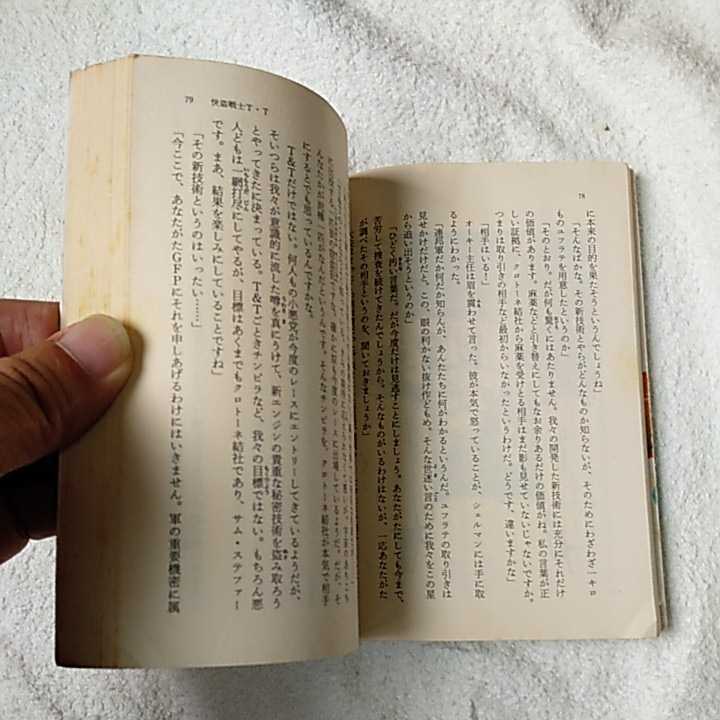 78
に本来の目的を果たそうというんでしょうね」
「そんなばかな。その新技術とやらがどんなものか知らないが、そのためにわざわざ一キロ
ものユフラテを用意したというのか」
「そのとおり。だが何も驚くにはあたりません。我々の開発した新技術には充分にそれだけ
の価値があります。麻薬などと引き替えにしてもなお余りあるだけの価値がね。私の言葉が正
しい証拠に、クロトーネ結社から麻薬を受けとる相手はまだ影も見せていないじゃないですか。
つまりは取り引きの相手など最初からいなかったというわけだ。どうです、違いますかな」
「相手はいる！」
オーキー主任は眉を震わせて言った。彼が本気で怒っていることが、シェルマンには手に取
るようにわかった。
「連邦軍だか何だか知らんが、あんたたちに何がわかるというんだ。ユフラテの取り引きは
見せかけだけだと。この、眼の利かない抜け作どもめ。そんな世迷い言のために我々をこの星
から追い出そうというのか」
「ひどく汚い言葉だ。だが今度だけは見逃すことにしましょう。あなたがたにしても今まで、
苦労して捜査を続けてきたんでしょうから。そんなものがいるわけはないが、一応あなたがた
が調べたその相手というのを、聞いておきましょうか」
79 快盗戦士T・T
にするとでも思っているんですかな。
T&Tだけではない。何人もの小悪党が今度のレースにエントリーしてきているようだが、
そいつらは我々が意識的に流した噂を真にうけて、新エンジンの貴重な秘密技術を盗み取ろう
とやってきたに決まっている。T&Tごときチンピラなど、我々の目標ではない。もちろん悪
人どもは一網打尽にしてやるが、目標はあくまでもクロトーネ結社であり、サム・ステファー
です。まあ、結果を楽しみにしていることですね」
「その新技術というのはいったい……」
「今ここで、あなたがたGFPにそれを申しあげるわけにはいきません。軍の重要機密に属